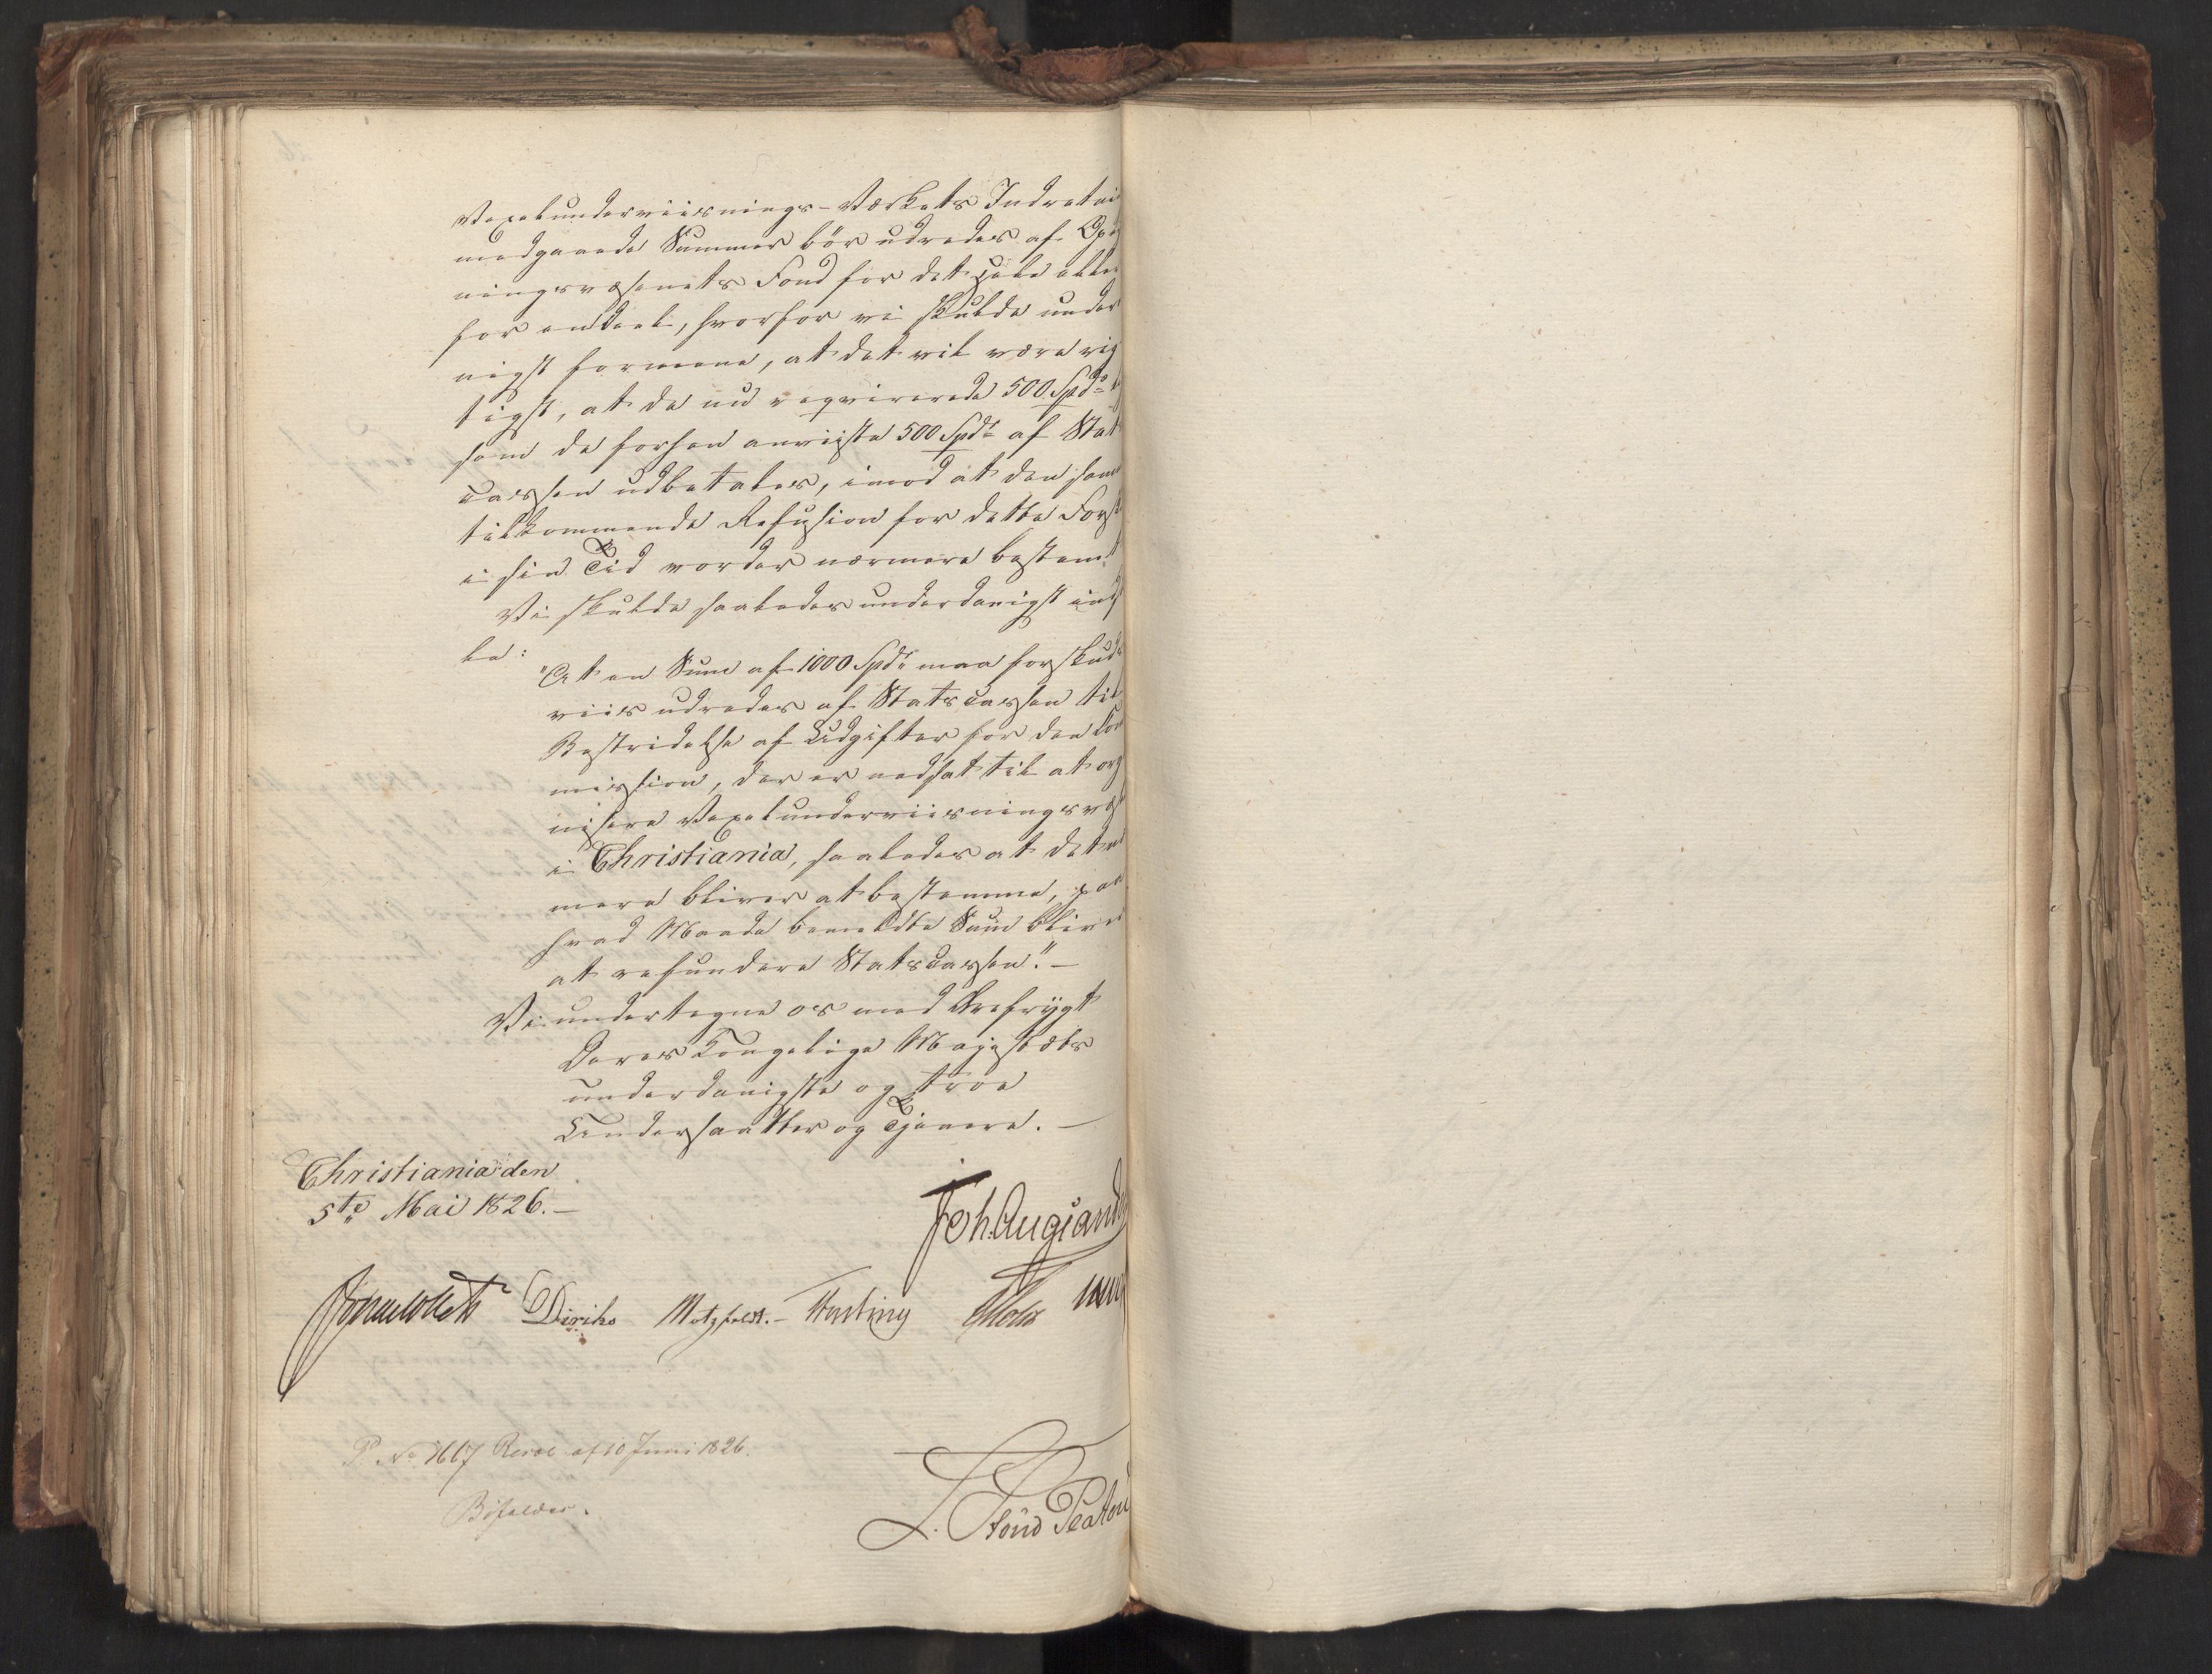 Vexelunderviisnings-Værkets Indretni
medgaaede Summer bør udredes af Op
ningsvæsenets Fond for det hele eller
for endeel, hvorfor vi skulde under
nigst formene, at det vil være rig
tigst, at de nu reqvirerede 500 Spd
som de forhen anviiste 500 Spdr af Stat
cassen udbetales, imod at den samme
tilkommende Refusion for dette Forsk
i sin Tid vorder nærmere bestemt
Vi skulde saaledes underdanigst ind
le:
"At en Sum af 1000 Spdr maa forskuds
viis udredes af Statscassen til
Bestridelse af Udgifter for den Com
mission, der er nedsat til at orga
nisere Vexelunderviisningsvæs
i Christiania, saaledes at det næ
mere bliver at bestemme, paa
hvad Maade bemeldte Sum bliver
at refundere Statscassen." —
Vi undertegne os med Ærefrygt
Deres Kongelige Majestæts
underdanigste og troe
Undersaatter og Tjenere. —
Christiania den
5te Mai 1826. —
Joh. Aug: Sand
Diriks Motzfeldt. — Fasting Holst
P No 1667 Resol af 10 Juni 1826.
Bifaldes.